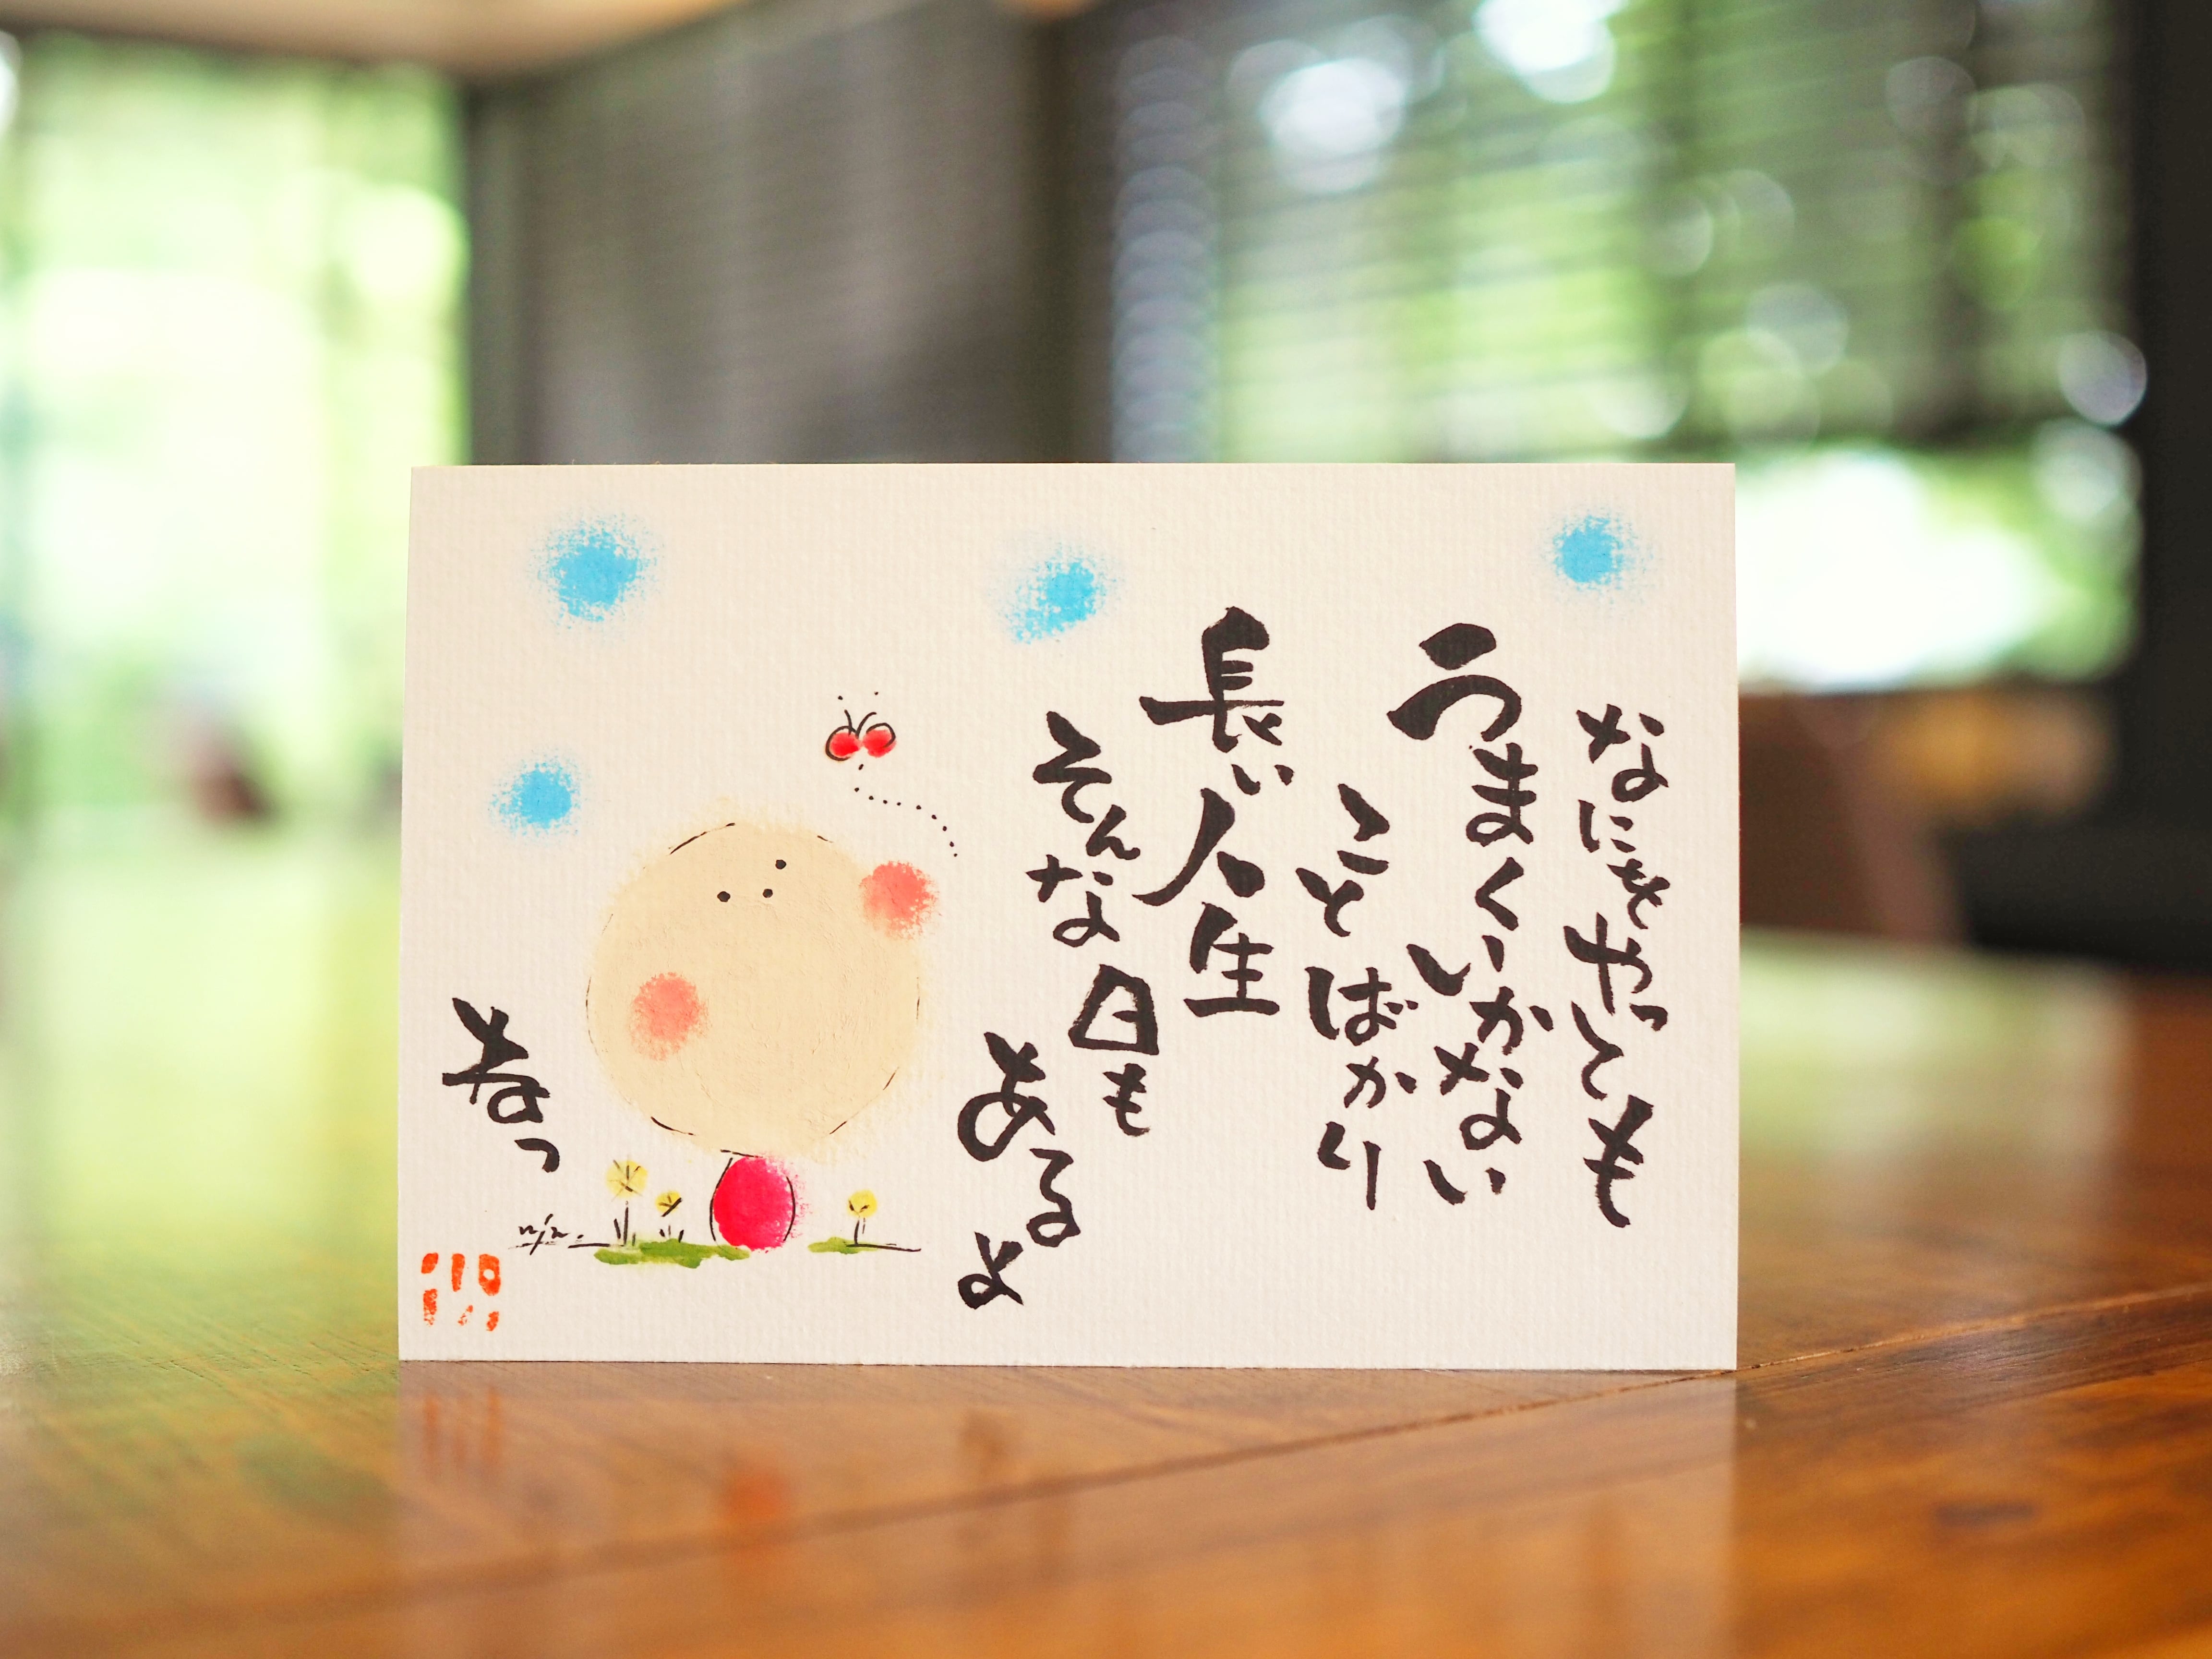 なにをやっても
うまくいかない
ことばかり
長い人生
そんな日も
あるよ
ねっ